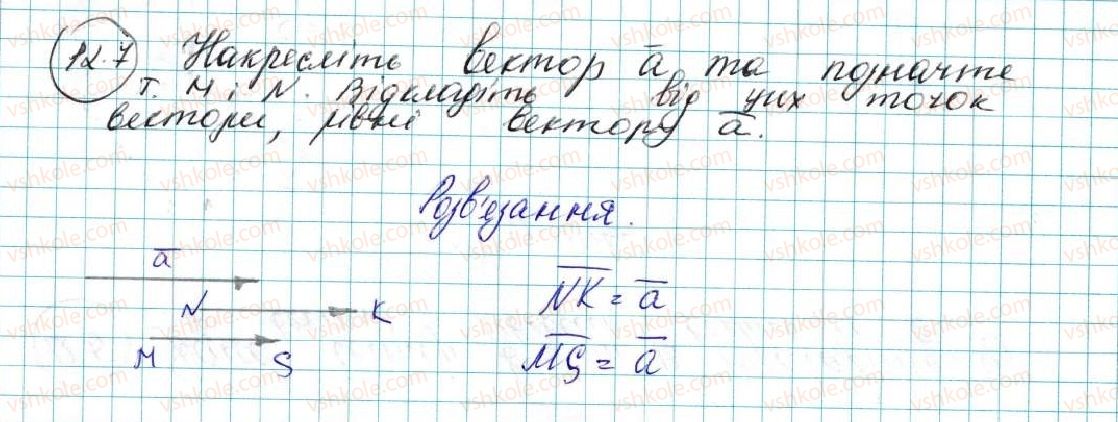 12.7 Накресліть вектор a̅ та позначте
т. M і N. Відкладіть від цих точок
вектори, рівні вектору a̅.
Розв'язання.
a̅
N K
M S
N̅K̅ = a̅
M̅S̅ = a̅
vshkole.com